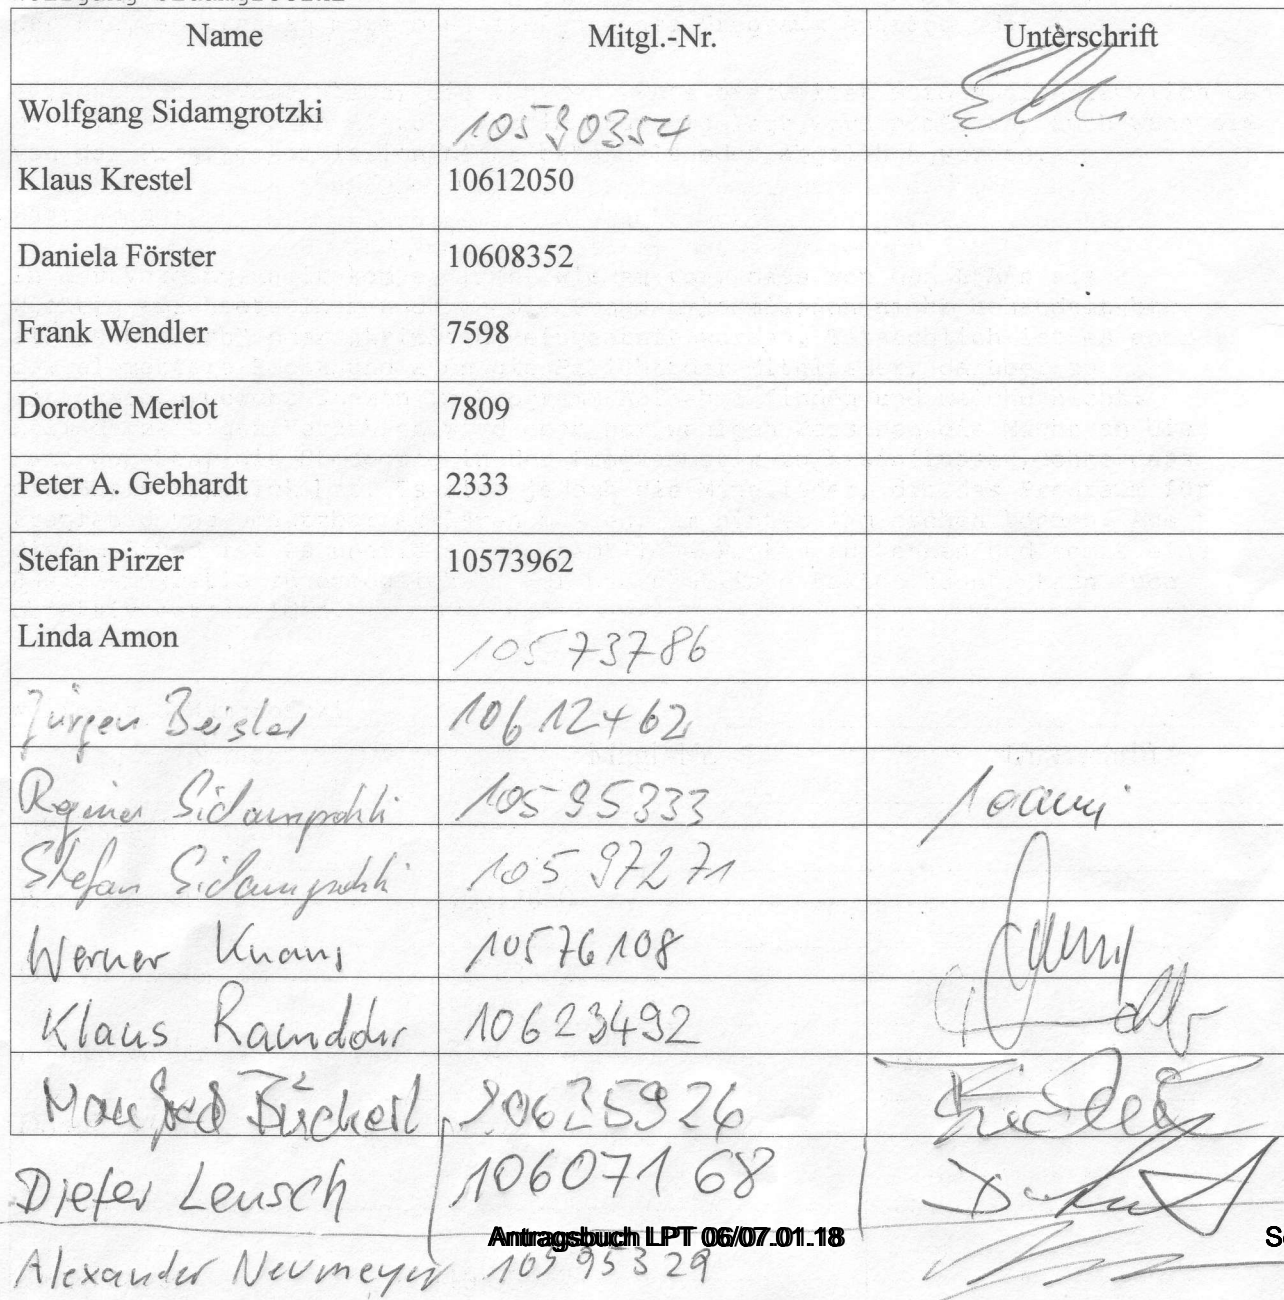 Name Mitgl.-Nr. Unterschrift
Wolfgang Sidamgrotzki 10590354
Klaus Krestel 10612050
Daniela Förster 10608352
Frank Wendler 7598
Dorothe Merlot 7809
Peter A. Gebhardt 2333
Stefan Pirzer 10573962
Linda Amon 10573786
Jürgen Beisler 10612462
Regina Sidamgrotzki 10595333
Stefan Sidamgrotzki 10597271
Werner Knaus 10576108
Klaus Ramddhr 10623492
Manfred 10625926
Dieter Lensch 10607168
Antragsbuch LPT 06/07.01.18
Alexander Neumeyer 10595329